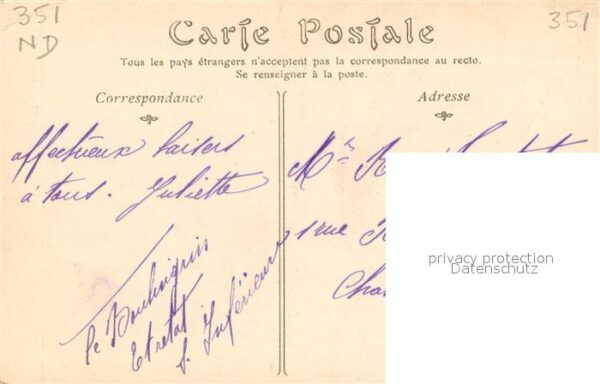 351
ND
351
Carte Postale
Tous les pays étrangers n'acceptent pas la correspondance au recto.
Se renseigner à la poste.
Correspondance
Adresse
affectueux baisers
à tous. Juliette
le Boulingrin
Etretat
S. Inférieure
1 rue
privacy protection
Datenschutz